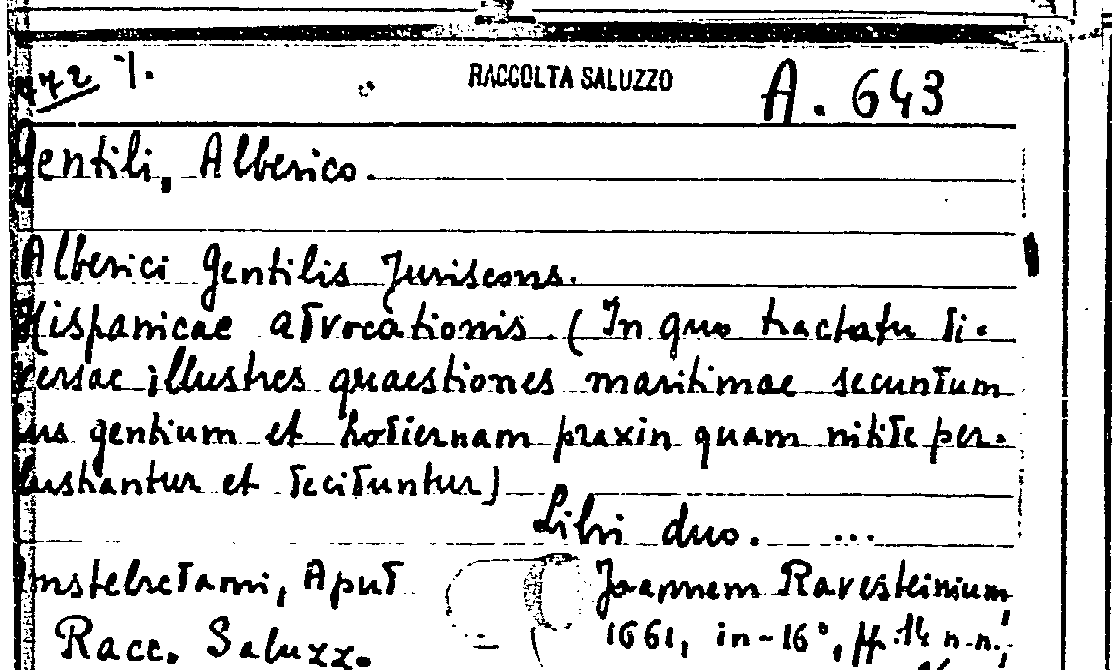 RACCOLTA SALUZZO A. 643
Gentili, Alberico.
Alberici Gentilis Juriscons.
Hispanicae advocationis. (In quo tractatu di-
versae illustres quaestiones maritimae secundum
ius gentium et hodiernam praxin quam nitide per-
lustrantur et deciduntur)
Libri duo. ...
Amstelredami, Apud Joannem Ravesteinium,
Racc. Saluzz. 1661, in-16°, ff. 14 n.n.,